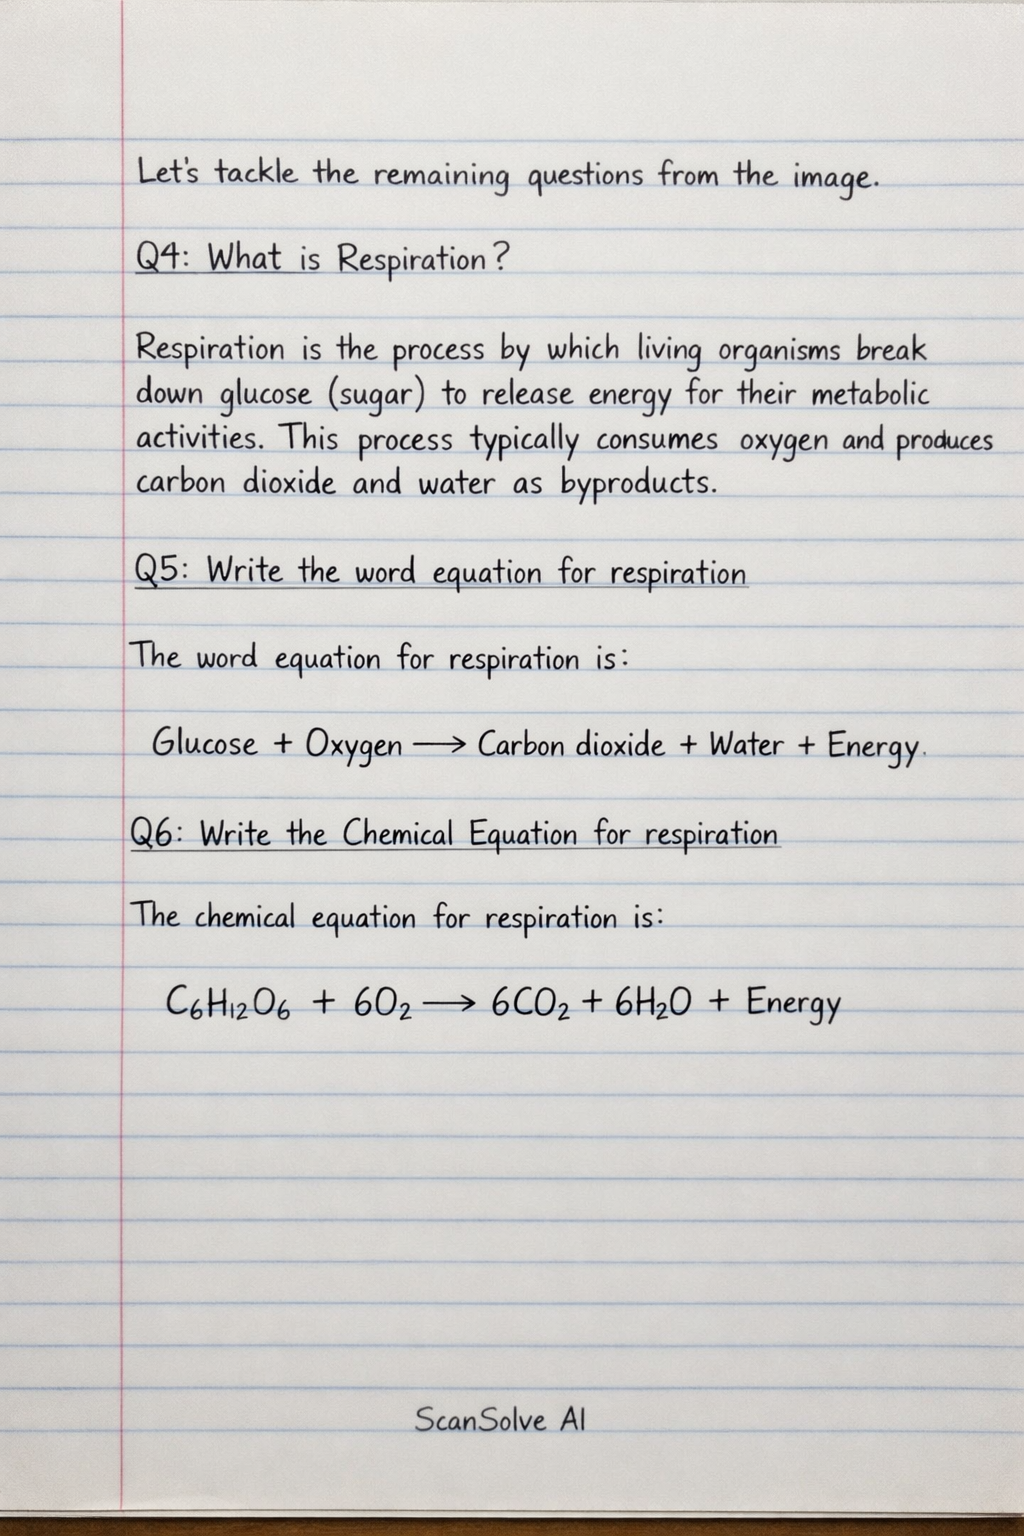 Let's tackle the remaining questions from the image.
Q4: What is Respiration?
Respiration is the process by which living organisms break
down glucose (sugar) to release energy for their metabolic
activities. This process typically consumes oxygen and produces
carbon dioxide and water as byproducts.
Q5: Write the word equation for respiration
The word equation for respiration is:
Glucose + Oxygen ⟶ Carbon dioxide + Water + Energy.
Q6: Write the Chemical Equation for respiration
The chemical equation for respiration is:
C₆H₁₂O₆ + 6O₂ ⟶ 6CO₂ + 6H₂O + Energy
ScanSolve AI